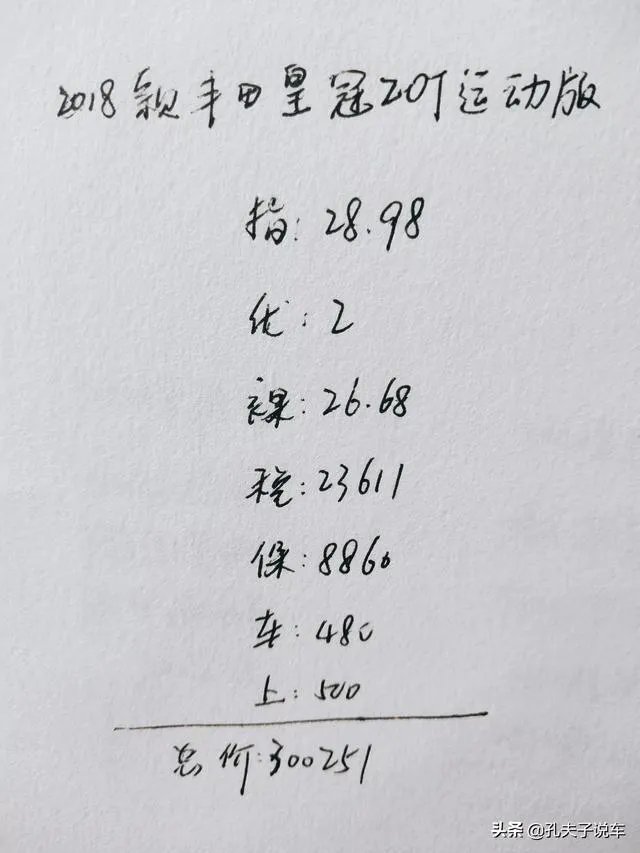 2018款丰田皇冠2.0T运动版
指:28.98
优:2
裸:26.68
税:23611
保:8860
车:480
上:500
总价:300251
头条 @孔夫子说车